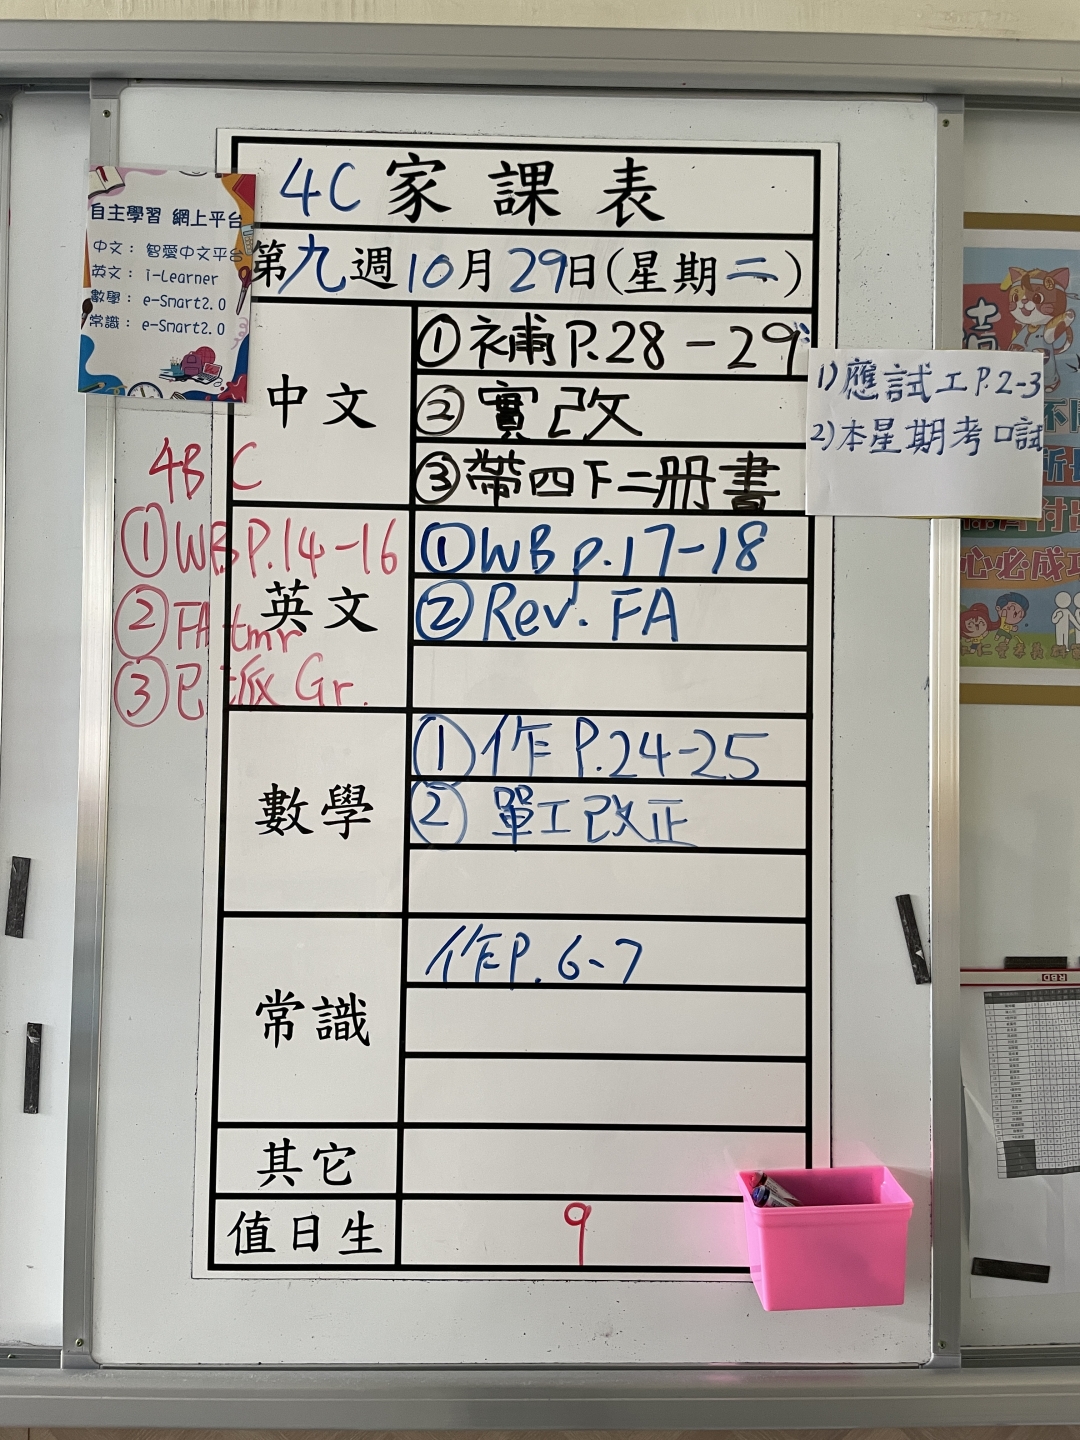 4C 家課表
第九週10月29日(星期二)
自主學習 網上平台
中文： 智愛中文平台
英文： i-Learner
數學： e-Smart2.0
常識： e-Smart2.0
中文
①補P.28-29
②實改
③帶四下二冊書
1)應試工P.2-3
2)本星期考口試
4B C
①W.B.P.14-16
②FA tmr
③已派 Gr.
英文
①WB p.17-18
②Rev. FA
數學
①作P.24-25
②單工改正
常識
作P.6-7
其它
值日生
9
心必成功
RBD